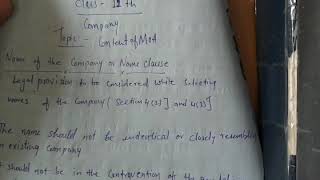 Class - 11th
Company
Topic - Content of MoA
Name of the Company or Name clause
Legal provision to be considered while selecting
names of the Company [Section 4(2)] and 4(3)]
The name should not be identical or closely resembling
an existing Company
should not be in the Contravention of the